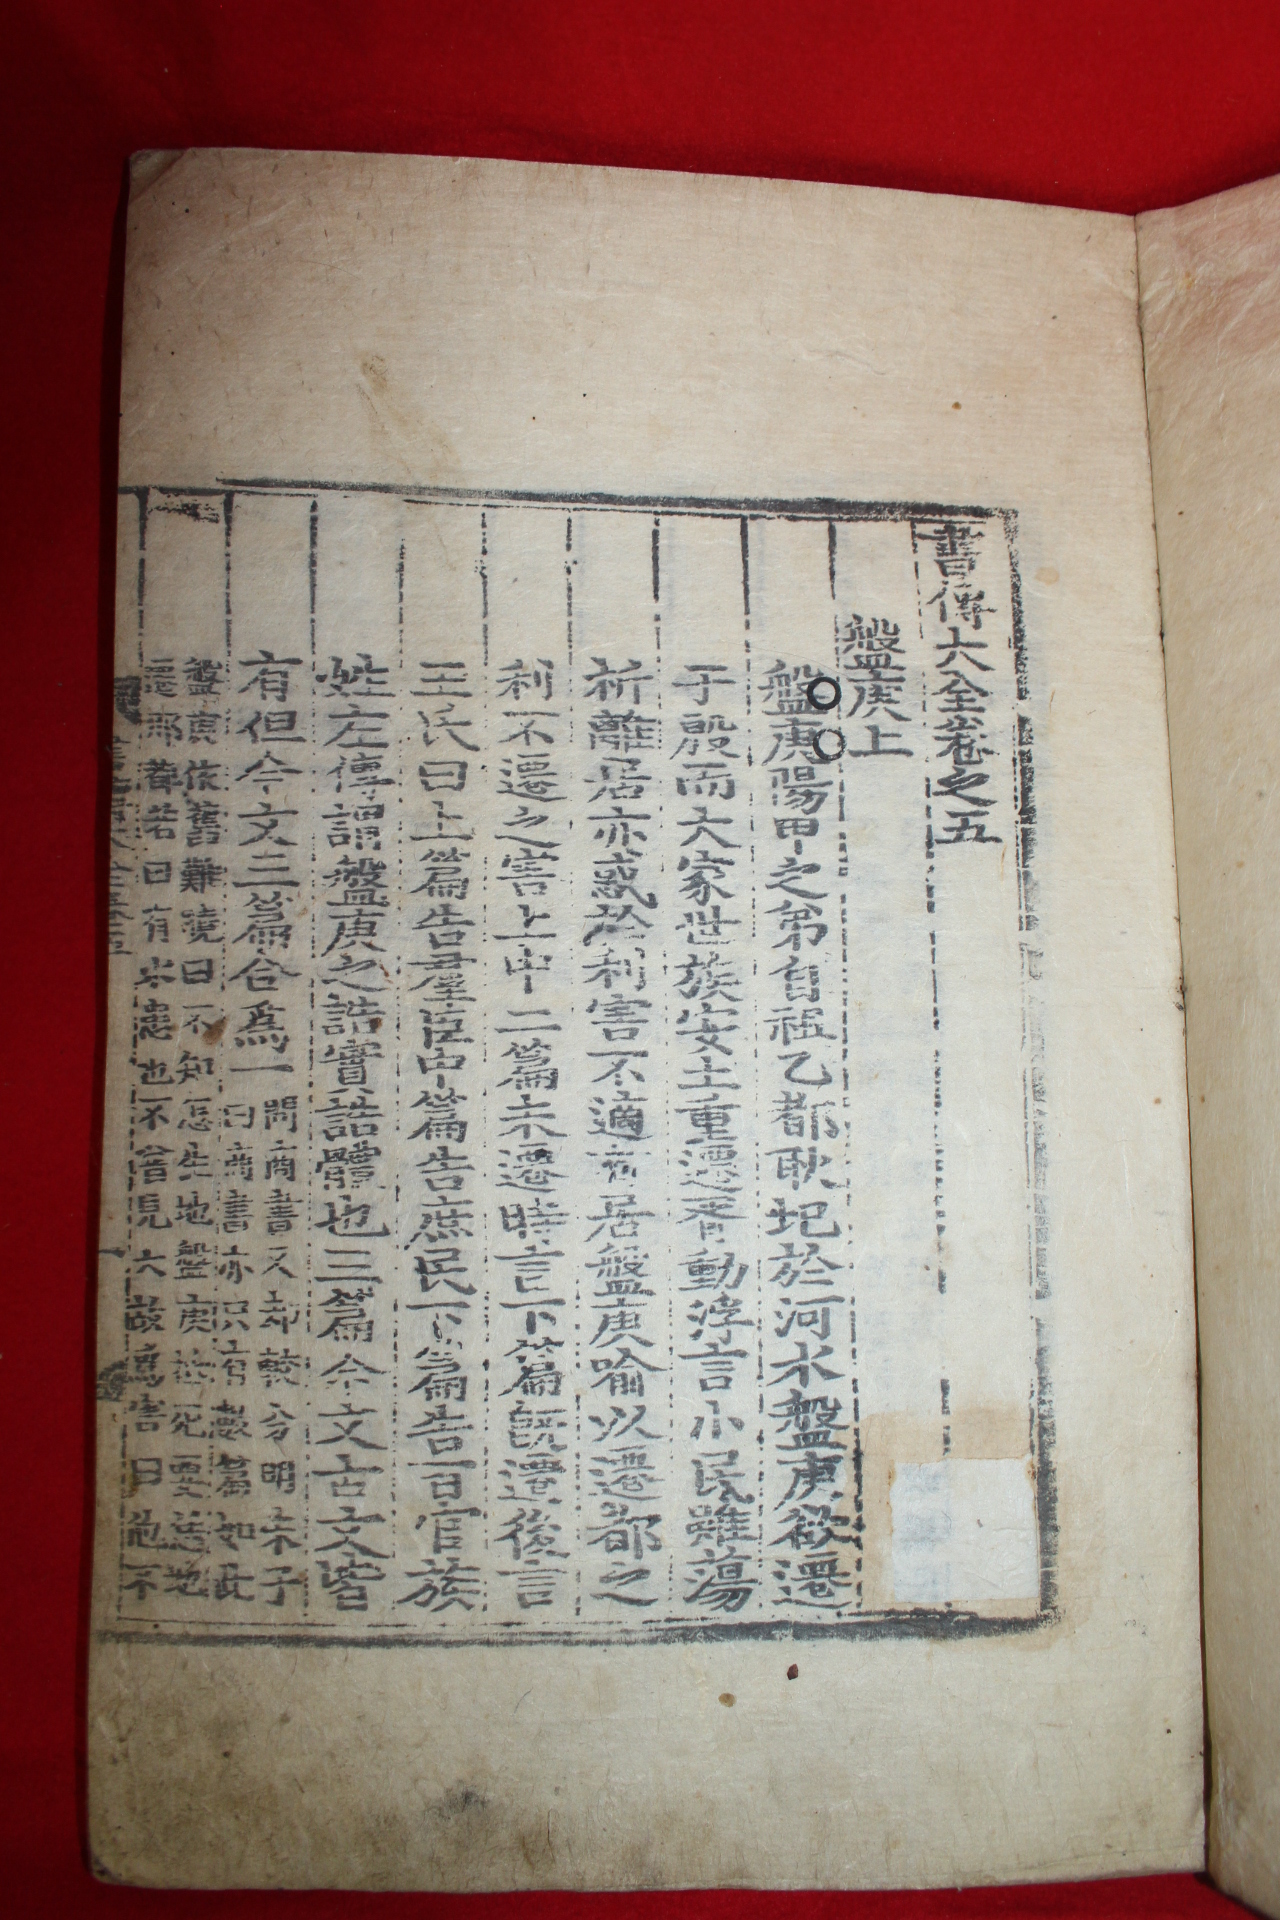 書傳大全卷之五
盤庚上
盤庚陽甲之弟自祖乙都耿圯於河水盤庚欲遷
于殷而大家世族安土重遷胥動浮言小民雖蕩
析離居亦惑於利害不適有居盤庚喩以遷都之
利不遷之害上中二篇未遷時言下篇旣遷後言
王氏曰上篇告羣臣中篇告庶民下篇告百官族
姓左傳謂盤庚之誥實誥體也三篇今文古文皆
有但今文三篇合爲一
問商書又却較分明朱子
曰商書亦只有數篇如此
盤庚依舊難曉曰不知怎生地盤庚抵死要恁地
遷那都若曰有水患也不曾見大故爲害曰他不